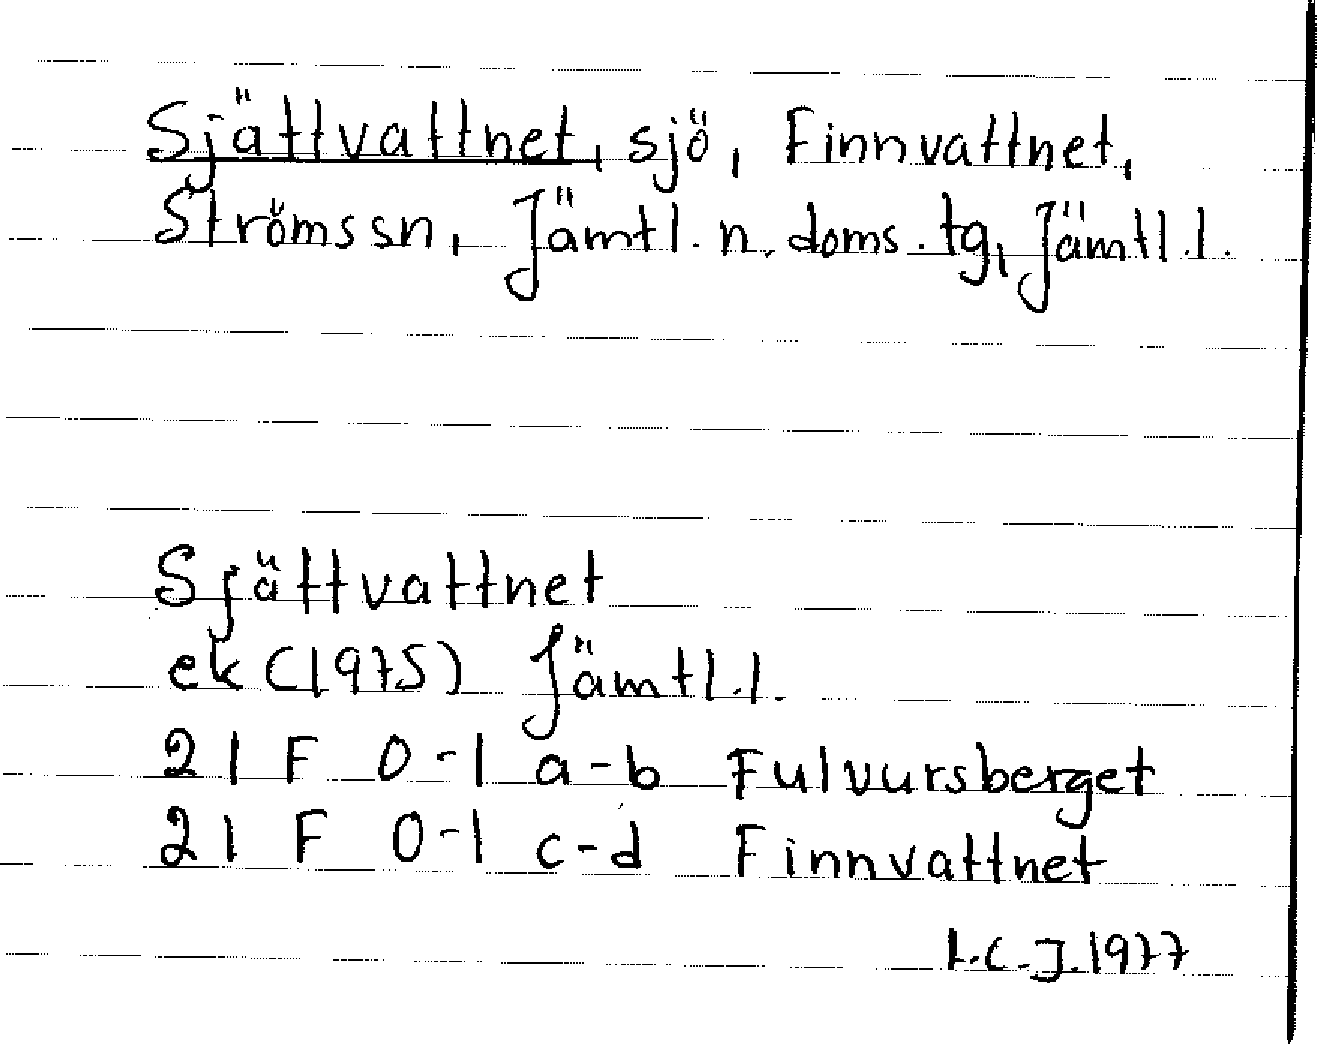 Sjättvattnet, sjö, Finnvattnet,
Strömssn, Jämtl. n. doms. tg, Jämtl.l.
Sjättvattnet
ek (1975) Jämtl.l.
21 F 0-1 a-b Fulvursberget
21 F 0-1 c-d Finnvattnet
L.C.J. 1977